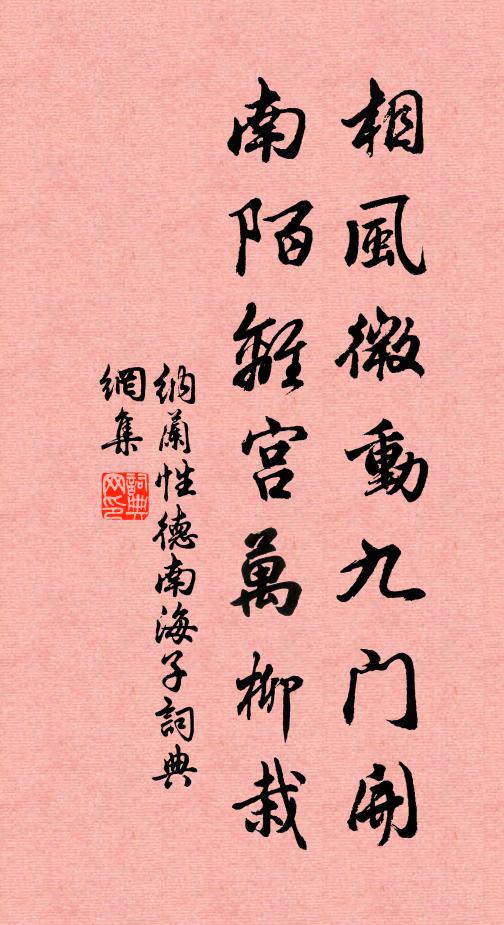 相風微動九门開
南陌離宮萬柳栽
納蘭性德南海子詞典
網集
詞典
网印